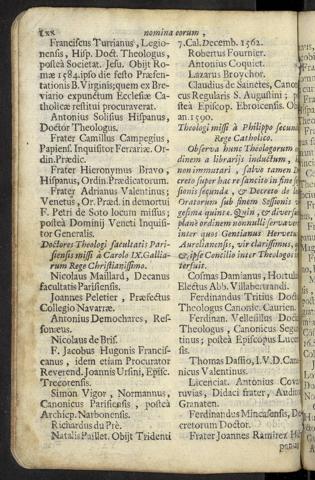 Lxx
nomina eorum,
Franciscus Turrianus, Legio-
nensis, Hisp. Doct. Theologus,
posteà Societat. Jesu. Obijt Ro-
mæ 1584. ipso die festo Præsen-
tationis B. Virginis; quem ex Bre-
viario expunctum Ecclesiæ Ca-
tholicæ restitui procuraverat.
Antonius Solisius Hispanus,
Doctor Theologus.
Frater Camillus Campegius,
Papiens. Inquisitor Ferrariæ. Or-
din. Prædic.
Frater Hieronymus Bravo,
Hispanus, Ordin. Prædicatorum.
Frater Adrianus Valentinus;
Venetus, Or. Præd. in demortui
F. Petri de Soto locum missus;
posteà Dominij Veneti Inquisi-
tor Generalis.
Doctores Theologi facultatis Pari-
siensis missi à Carolo IX. Gallia-
rum Rege Christianissimo.
Nicolaus Maillard, Decanus
facultatis Parisiensis.
Joannes Peletier, Præfectus
Collegio Navarræ.
Antonius Demochares, Res-
sonæus.
Nicolaus de Bris.
F. Jacobus Hugonis Francis-
canus, idem etiam Procurator
Reverend. Joannis Ursini, Episc.
Trecorensis.
Simon Vigor, Normannus,
Canonicus Parisiensis, posteà
Archiep. Narbonensis.
Richardus du Prè.
Natalis Paillet. Obijt Tridenti
7. Cal. Decemb. 1562.
Robertus Fournier.
Antonius Coquiet.
Lazarus Broychor.
Claudius de Sainctes, Canoni-
cus Regularis S. Augustini; po-
steà Episcop. Ebroicensis. Ob
an. 1590.
Theologi missi à Philippo secundo
Rege Catholico.
Observa hunc Theologorum o
dinem a librarijs inductum,
non immutari, salvo tamen D
creto super hac re sancito in fine se
sionis secundæ, & Decreto de
Oratorum sub finem Sessionis
gesima quinta. Quin, & diversu
planè ordinem nonnulli servant
inter quos Gentianus Hervetu
Aurelianensis, vir clarissimus,
&, ipse Concilio inter Theologos
terfuit.
Cosmas Damianus, Hortula
Electus Abb. Villabertrandi.
Ferdinandus Tritius Doct
Theologus Canonic. Caurien.
Ferdinand. Vellesillus Doct
Theologus, Canonicus Segun
tinus; posteà Episcopus Luce
sis.
Thomas Dassio, I. V. D. Can
nicus Valentinus.
Licenciat. Antonius Cova
ruvias, Didaci frater, Audit
Granaten.
Ferdinandus Mincasensis, De
cretorum Doctor.
Frater Joannes Ramirez Hi